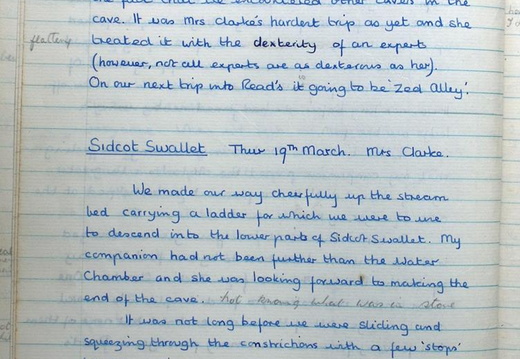 the fact that we encountered other cavers in the
cave. It was Mrs Clarke's hardest trip as yet and she
treated it with the dexterity of an experts
(however, not all experts are as dexterous as her).
On our next trip into Read's it going to be 'Zed Alley'.
flattery
Sidcot Swallet Thur 19th March. Mrs Clarke.
We made our way cheerfully up the stream
bed carrying a ladder for which we were to use
to descend into the lower parts of Sidcot Swallet. My
companion had not been further than the Water
Chamber and she was looking forward to making the
end of the cave. not knowing what was in store
It was not long before we were sliding and
squeezing through the constrictions with a few 'stops'